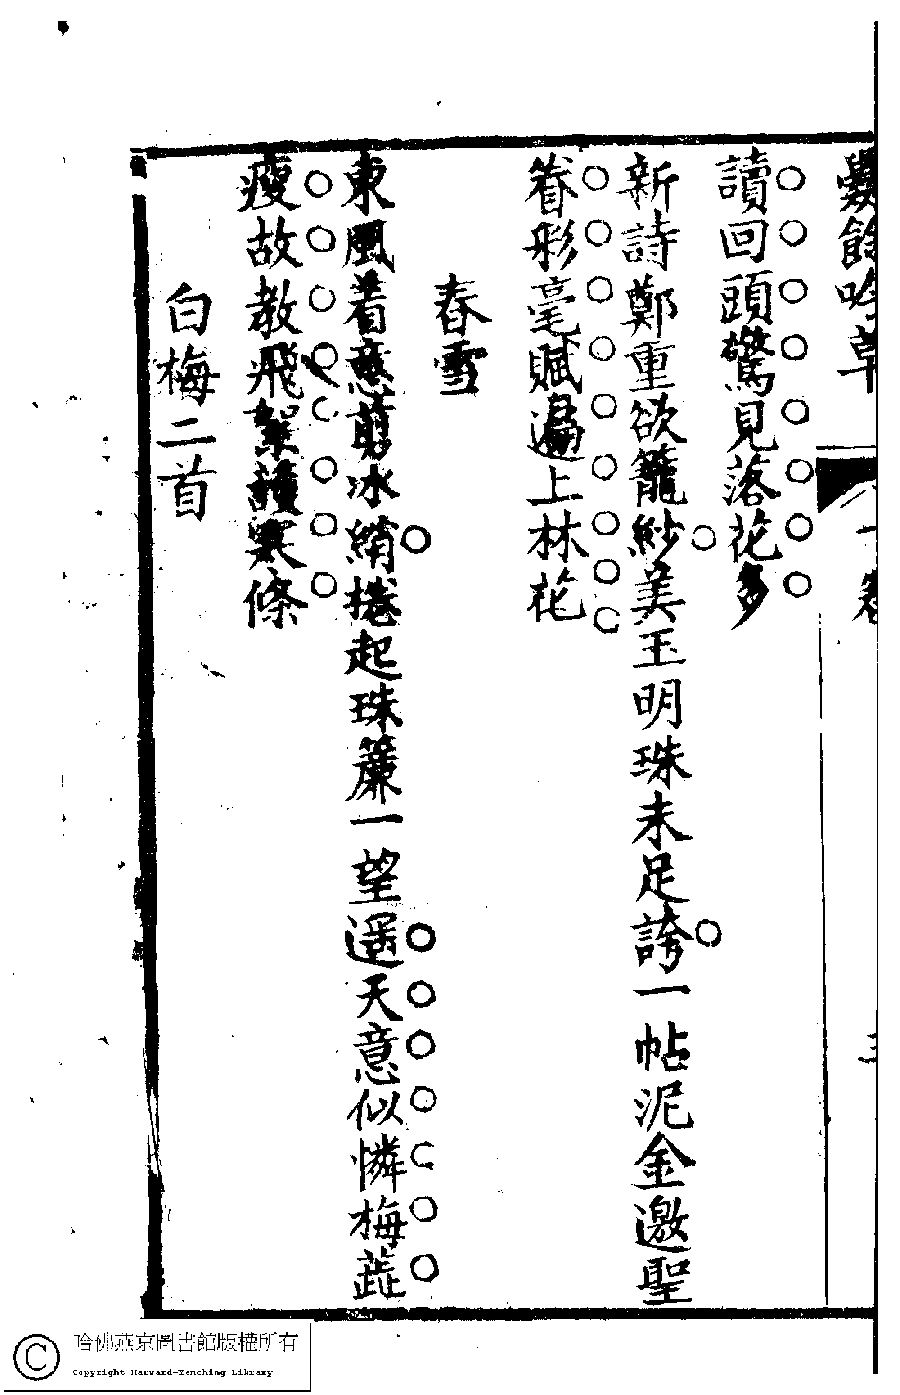 爨餘吟草
一卷
三
讀回頭驚見落花多
新詩鄭重欲籠紗美玉明珠未足誇一帖泥金邀聖
眷彤毫賦遍上林花
春雪
東風着意剪冰綃捲起珠簾一望遥天意似憐梅蕋
瘦故教飛絮護寒條
白梅二首
哈佛燕京圖書館版權所有
Copyright Harvard-Yenching Library